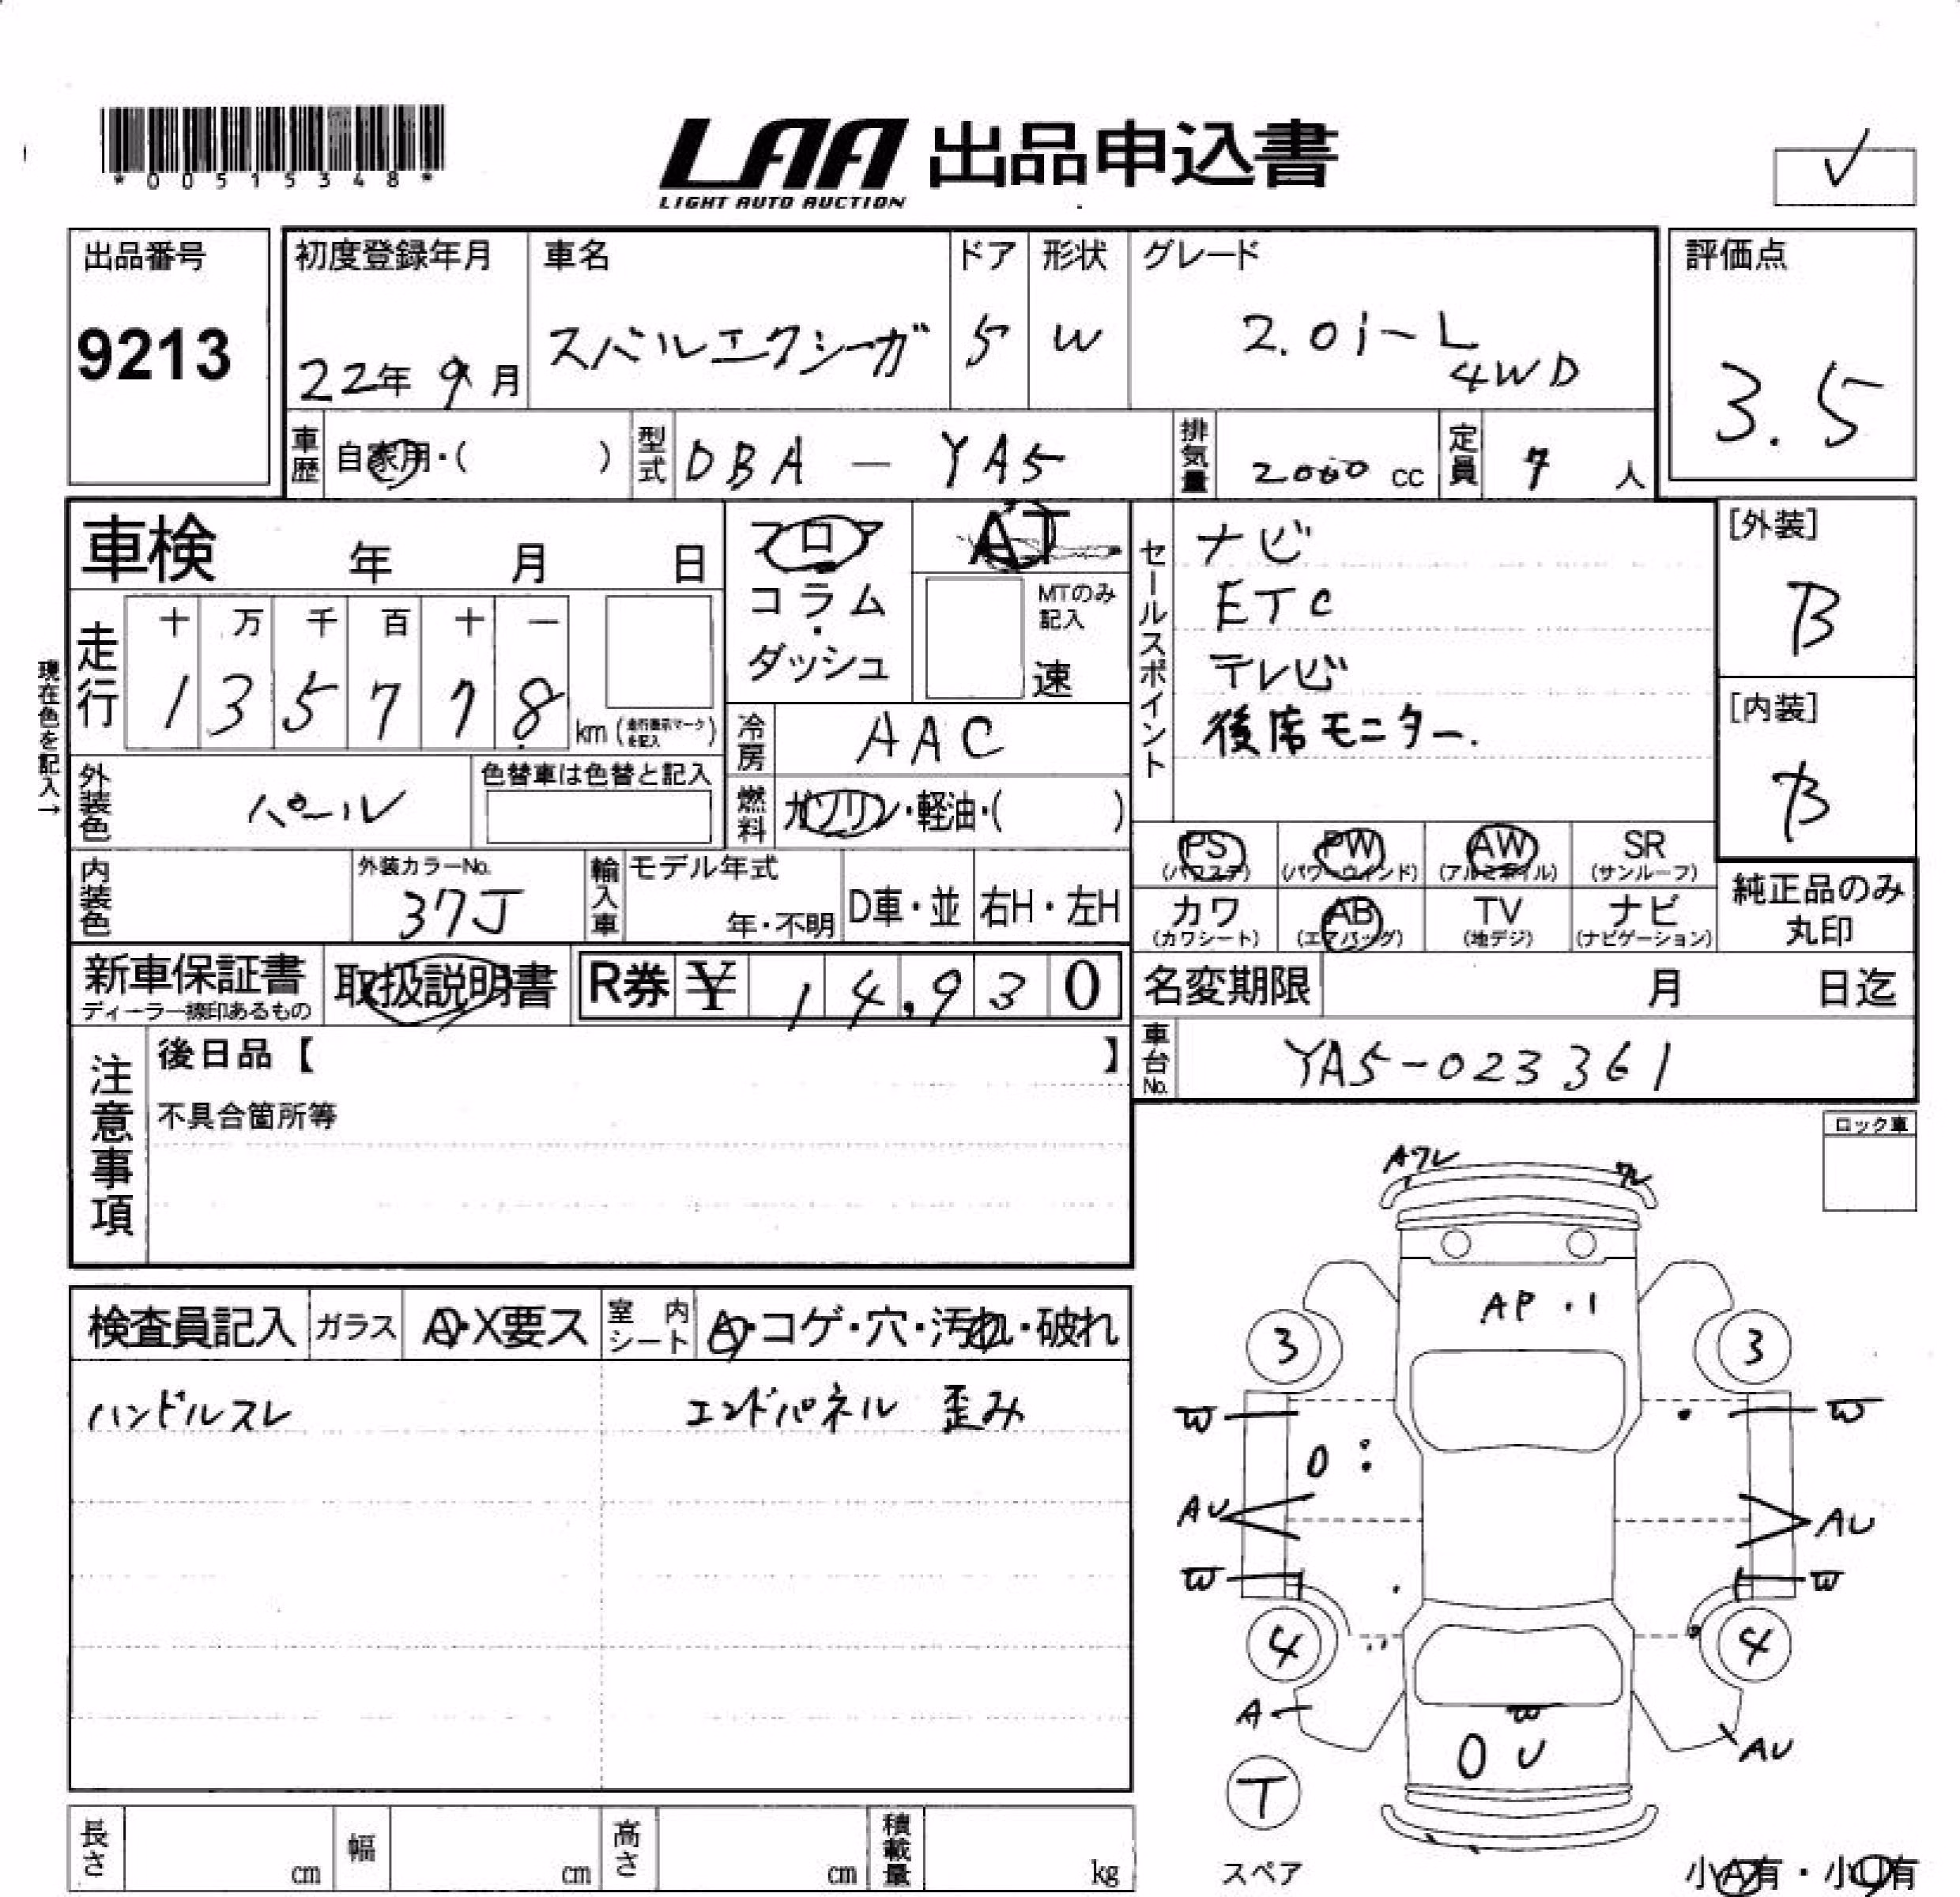 *00515348*
LAA 出品申込書
LIGHT AUTO AUCTION
✓
出品番号
9213
初度登録年月
22年 9月
車名
スバルエクシーガ
ドア
5
形状
W
グレード
2.0i-L
4WD
評価点
3.5
車歴 自家用・( )
型式 DBA - YA5
排気量 2000 cc
定員 7 人
車検 年 月 日
フロア
コラム
・
ダッシュ
AT
MTのみ
記入
速
セールスポイント
ナビ
ETC
テレビ
後席モニター.
[外装]
B
[内装]
B
現在色を記入→
走行
十 万 千 百 十 一
1 3 5 7 7 8
km (走行表示マークを記入)
冷房 AAC
燃料 ガソリン・軽油・( )
外装色 パール
色替車は色替と記入
内装色
外装カラーNo.
37J
輸入車
モデル年式
年・不明
D車・並
右H・左H
PS
(パワステ)
PW
(パワーウィンド)
AW
(アルミホイル)
SR
(サンルーフ)
カワ
(カワシート)
AB
(エアバッグ)
TV
(地デジ)
ナビ
(ナビゲーション)
純正品のみ
丸印
新車保証書
ディーラー捺印あるもの
取扱説明書
R券 ¥ 14,930
名変期限 月 日迄
車台No. YA5-023361
注意事項
後日品【 】
不具合箇所等
ロック車
検査員記入
ガラス
A・X要ス
室内シート
A・コゲ・穴・汚れ・破れ
ハンドルスレ
エンドパネル 歪み
Aワレ
ワレ
AP ・1
3
3
W
W
O :
AU
AU
W
W
4
4
A
W
O U
AU
T
スペア
小A有・小U有
長さ cm
幅 cm
高さ cm
積載量 kg